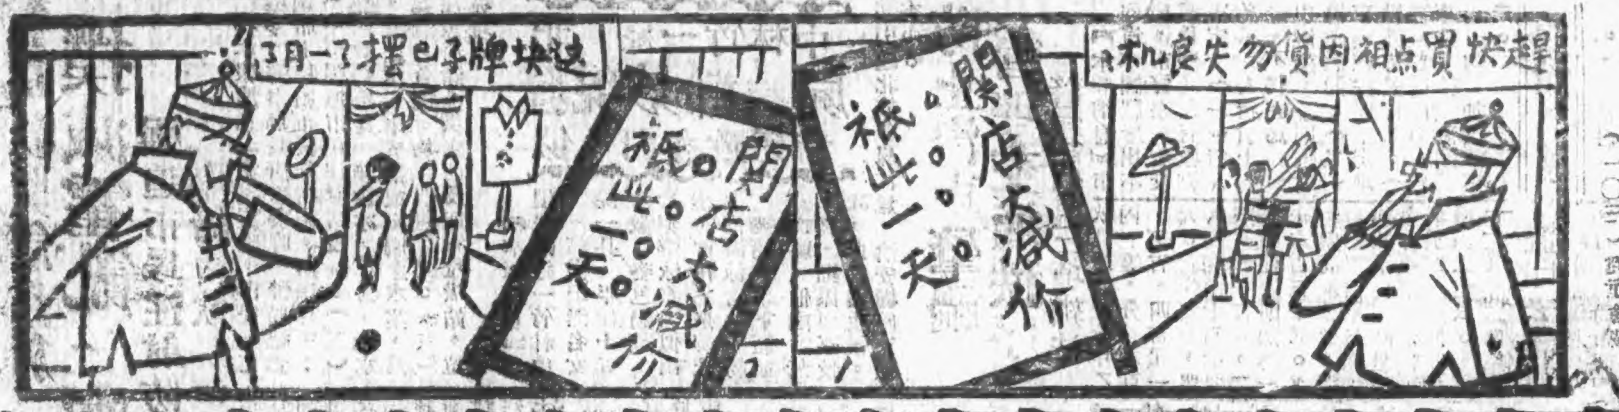 趕快買点相因貨勿失良机
関店大減价
祗。此。一。天。
这块牌子巳擺了一月了
関店大減价
祗。此。一。天。